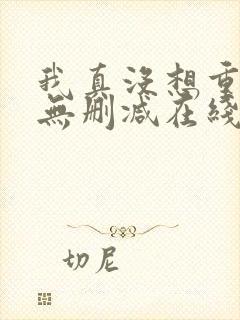 我真没想重
無删减在綫
切尼